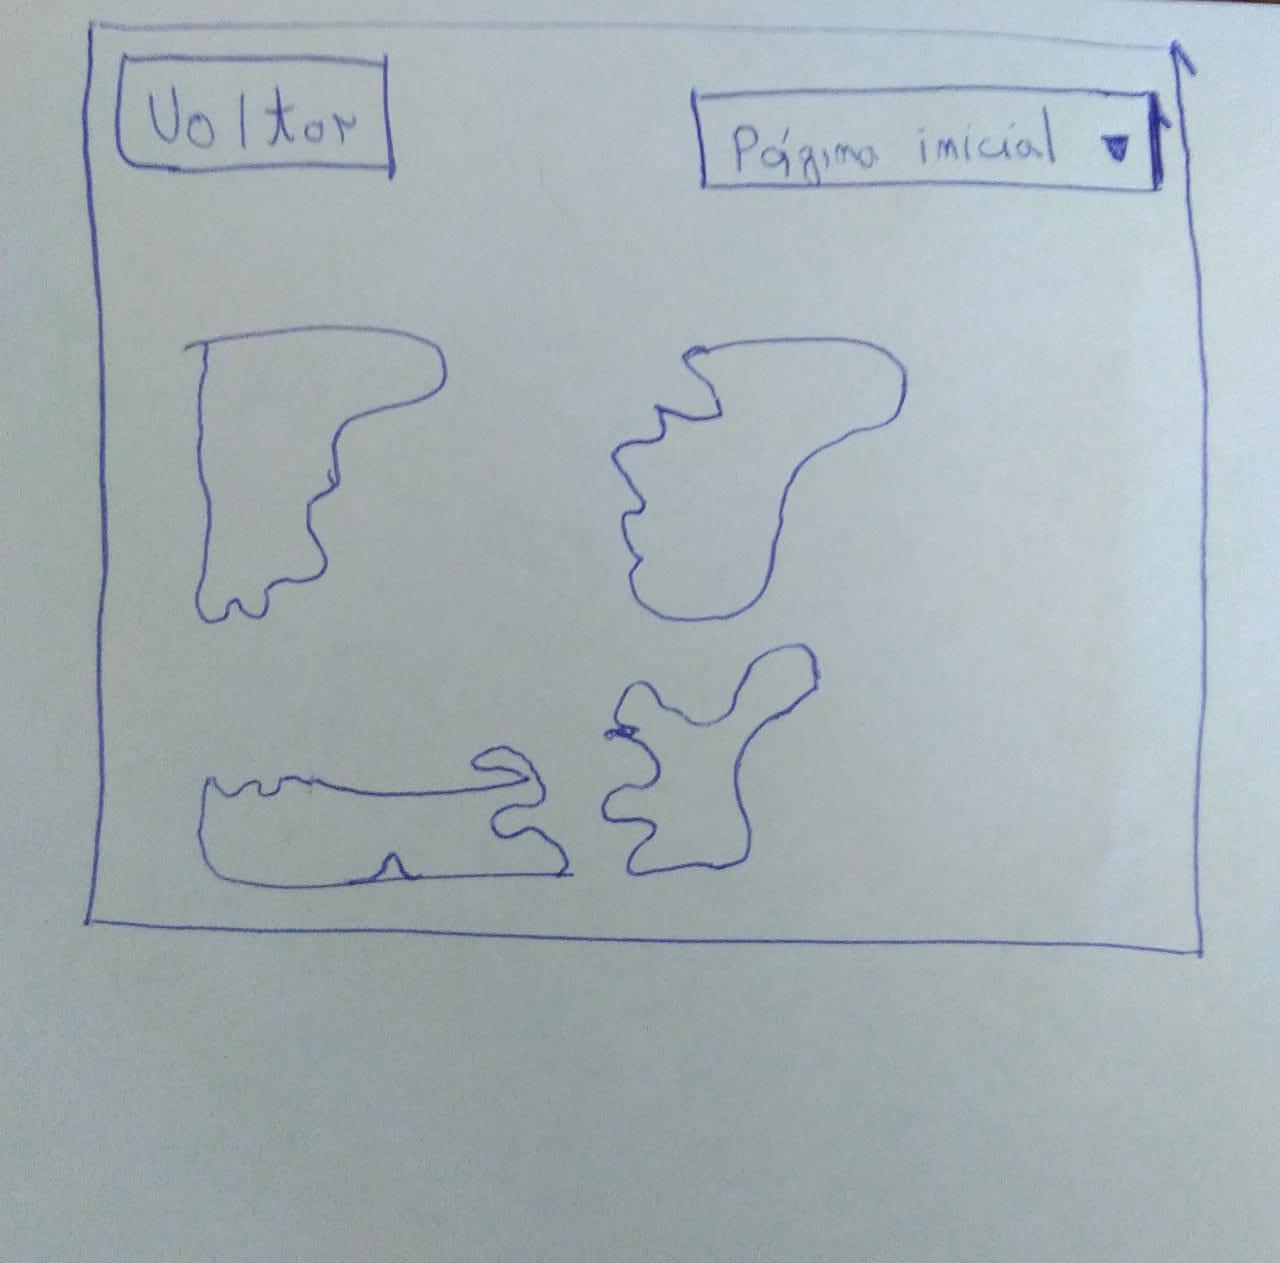 Voltar
Página inicial